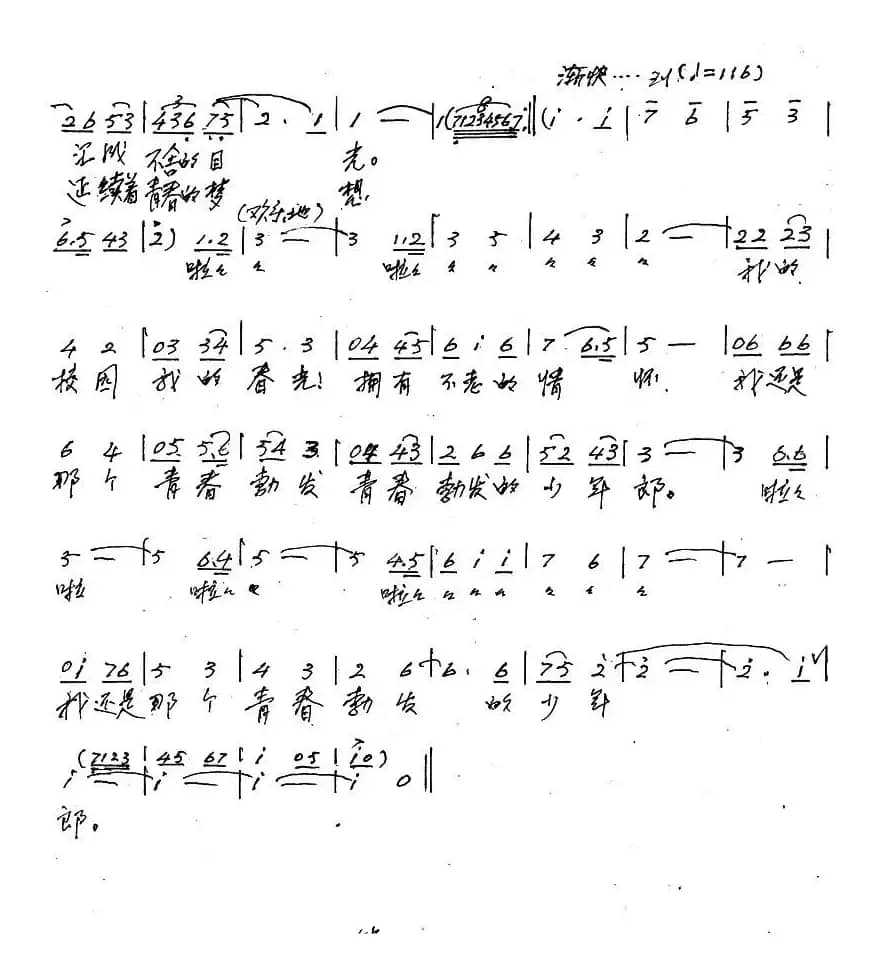 渐快····到(♩=116)
2 6 5 3 | 4 3 6 7 5 | 2 · 1 | 1 — | 1 (7 1 2 3 4 5 6 7 ‖ (i · i | 7 6 | 5 3 |
不舍的目 光。
延续着青春的梦 想
(欢乐地)
6.5 4 3 | 2) 1.2 | 3 — | 3 1.2 | 3 5 | 4 3 | 2 — | 2 2 2 3 |
啦 啦 我的
4 2 | 0 3 3 4 | 5 · 3 | 0 4 4 5 | 6 i 6 | 7 6.5 | 5 — | 0 6 6 6 |
校园 我的春光! 拥有不老的情怀. 我还是
6 4 | 0 5 5.6 | 5 4 3 | 0 4 4 3 | 2 6 6 | 5 2 4 3 | 3 — | 3 6.6 |
那个青春勃发青春勃发的少年郎。 啦
5 — | 5 6.4 | 5 — | 5 4.5 | 6 i i | 7 6 | 7 — | 7 — |
啦 啦 啦
0 i 7 6 | 5 3 | 4 3 | 2 6 | 6 · 6 | 7 5 2 | 2 — | 2 · i |
我还是那个青春勃发 的少年
(7 1 2 3 | 4 5 6 7 | i 0 5 | i 0)
i — | i — | i — | i 0 ‖
郎。